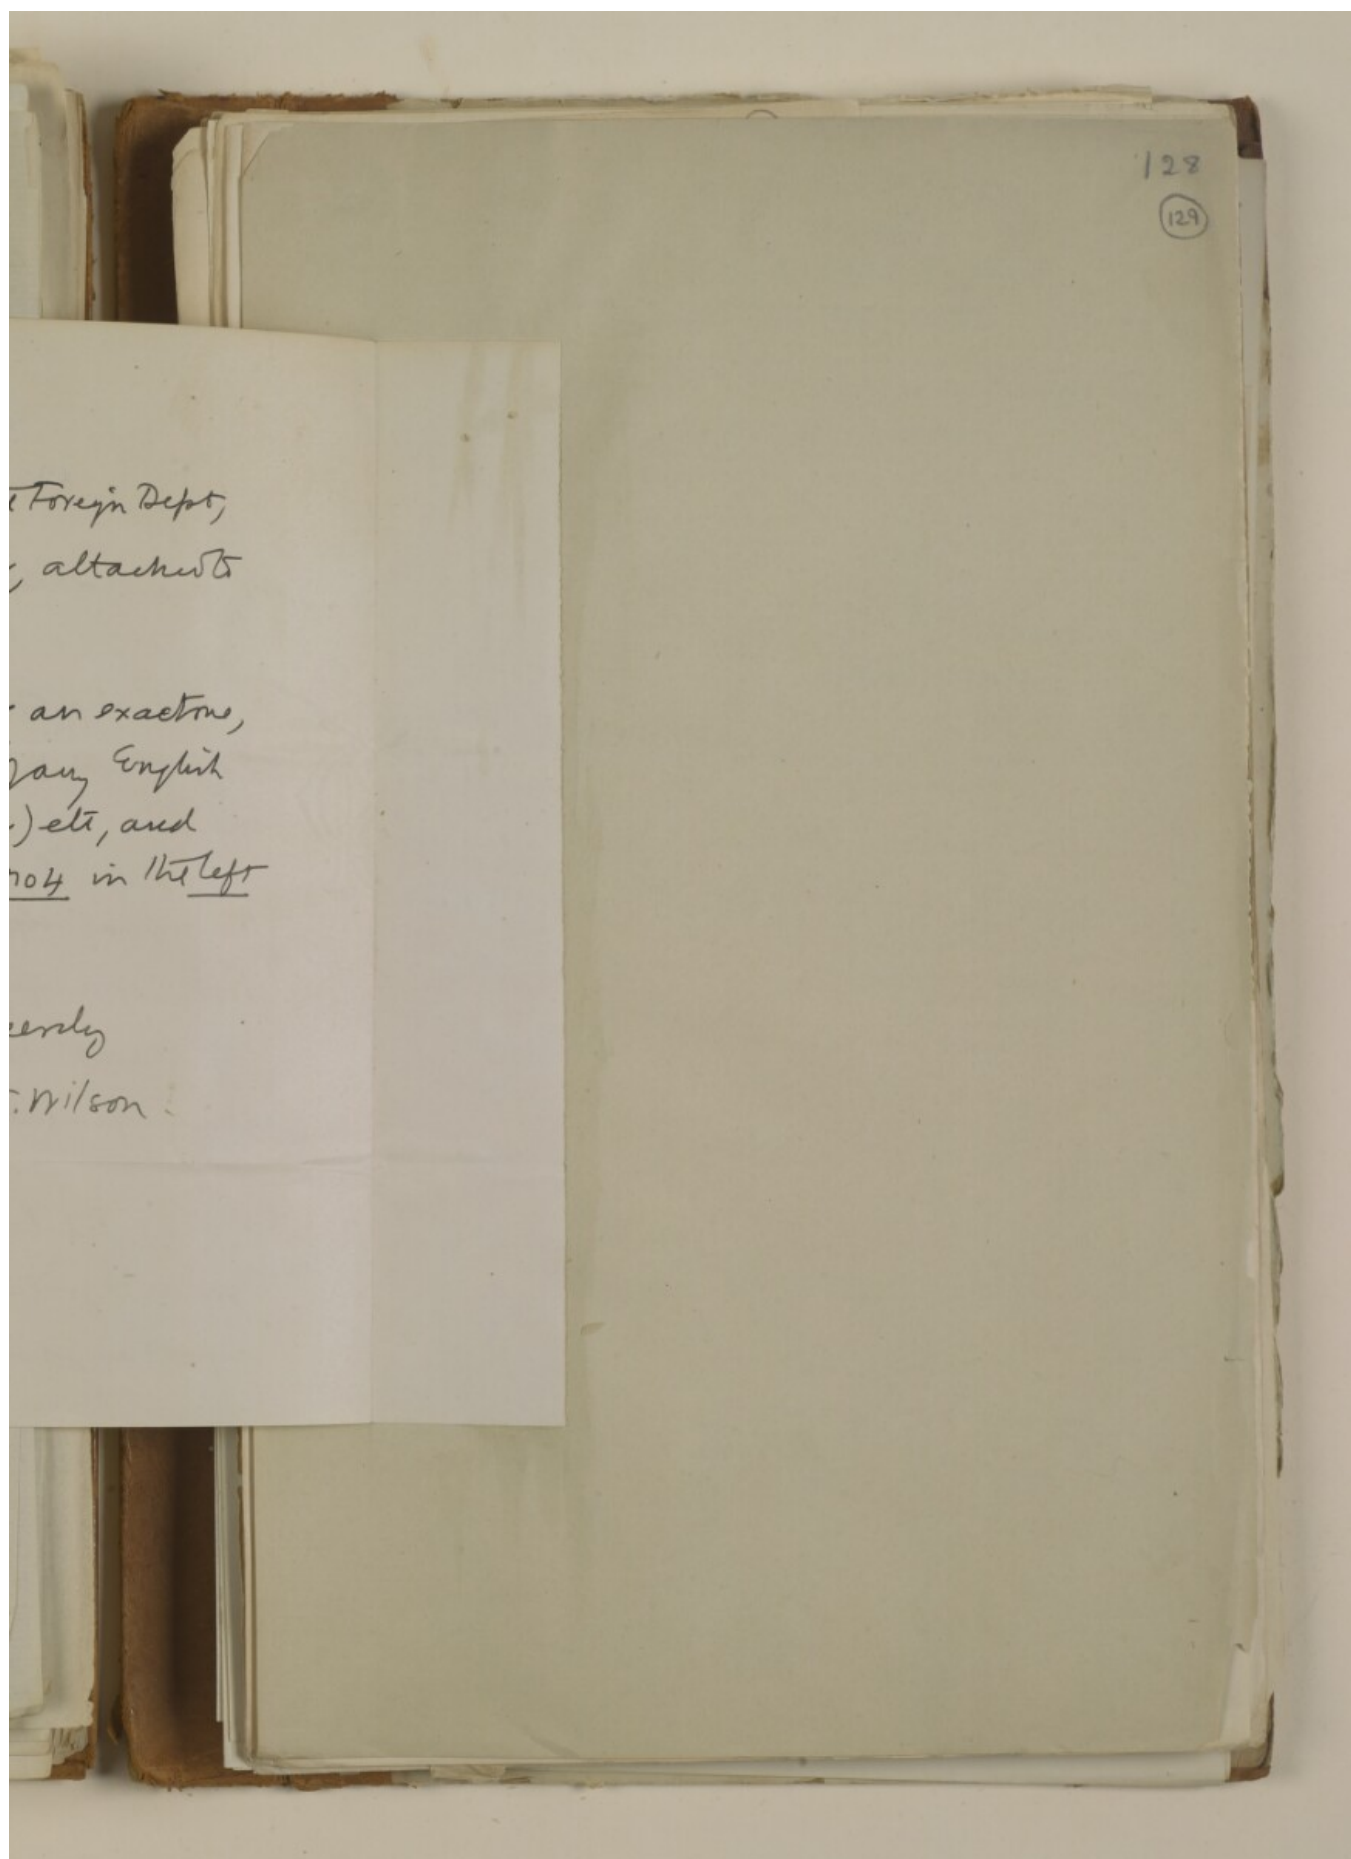 128
129
Foreign Dept,
, attached to
an exact one,
any English
) etc, and
704 in the left
cerely
. Wilson